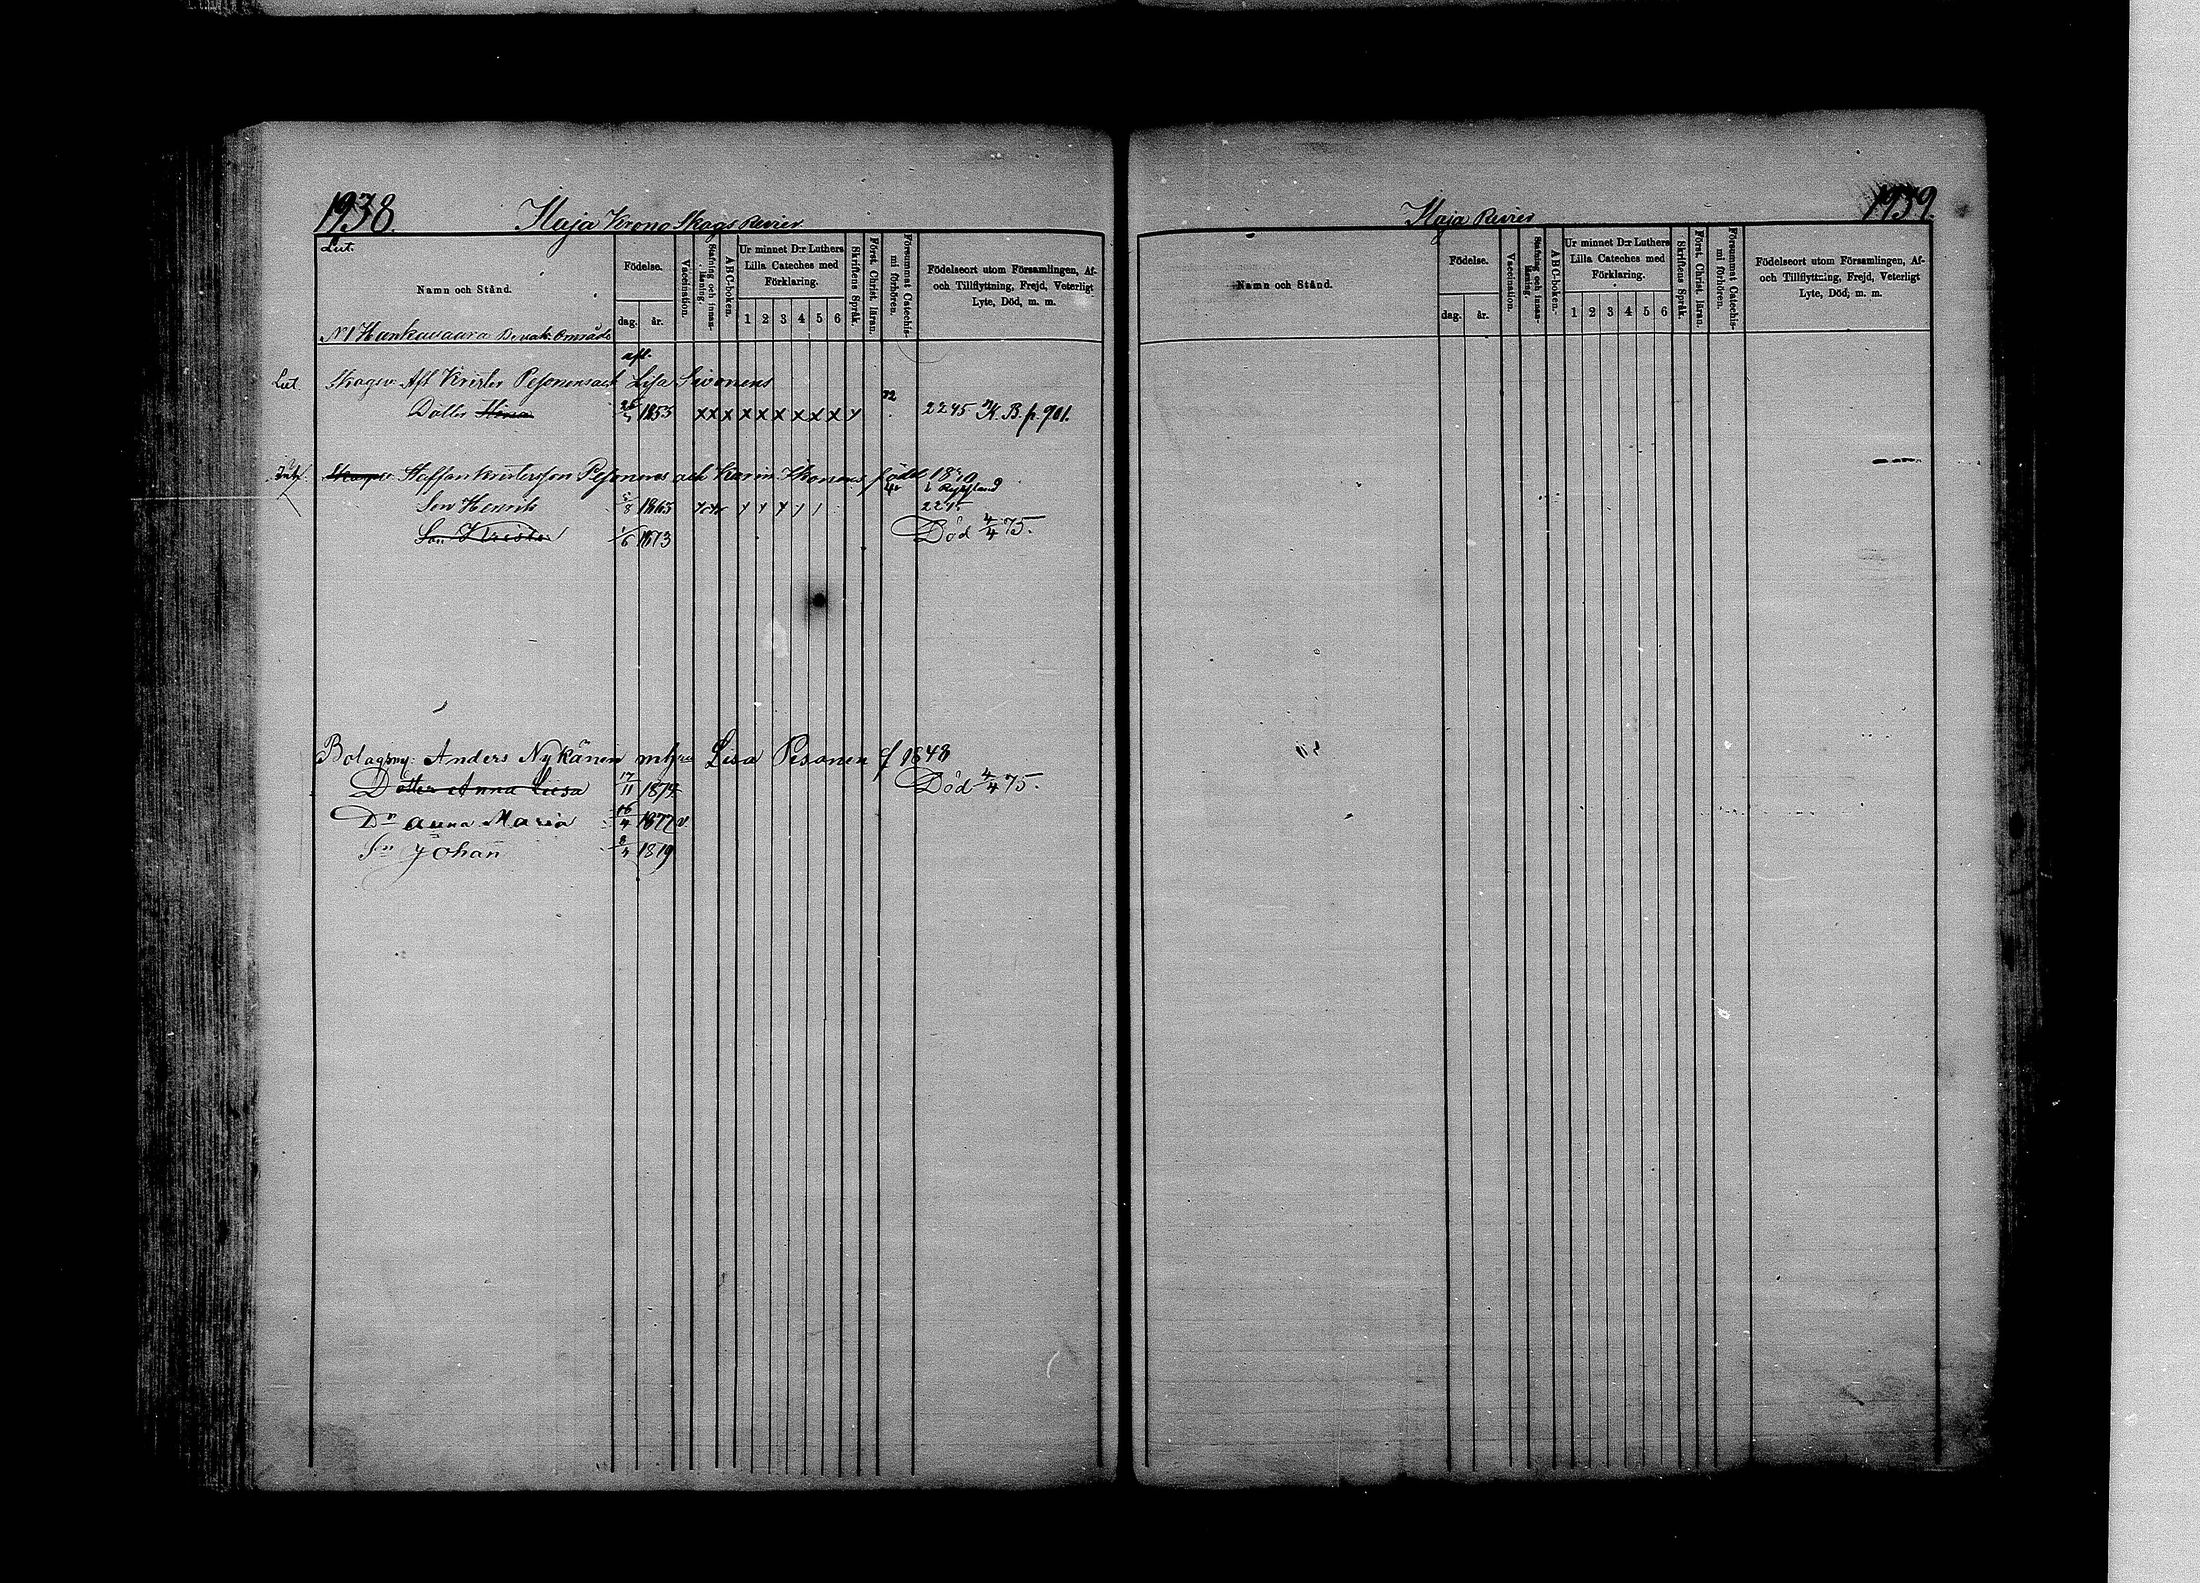 1938.
Haja Krono Skogs Revier
Lut
Namn och Stånd.
Födelse.
dag. år.
Vaccination.
Stafning och innan-läsning.
ABC-boken.
Ur minnet D:r Luthers
Lilla Cateches med
Förklaring.
1 2 3 4 5 6
Skriftens Språk.
Först. Christ. läran.
Försummat Catechis-mi förhören.
Födelseort utom Församlingen, Af-
och Tillflyttning, Frejd, Veterligt
Lyte, Död, m. m.
N 1 Hunkuvaara Bevak. Område
afl.
Lut Skogsv. Afl Krister Pesonens och Lisa Sivonens
Dotter Hina 1853 x x x x x x x x x 72 2245 N. B. p. 901.
Staffan Kristersson Pesonens och Karin Ikonens född 1840
Son Henrik 1865
Son Krister 1/6 1873 Död 4/4 75.
Bolagsm: Anders Nykänen m hru Lisa Pesonen f 1848
Dotter Anna Liisa 17/11 1874 Död 4/4 75.
Dr Anna Maria 16/4 1877 v.
Sn Johan 1879
1939.
Haja Revier
Namn och Stånd.
Födelse.
dag. år.
Vaccination.
Stafning och innan-läsning.
ABC-boken.
Ur minnet D:r Luthers
Lilla Cateches med
Förklaring.
1 2 3 4 5 6
Skriftens Språk.
Först. Christ. läran.
Försummat Catechis-mi förhören.
Födelseort utom Församlingen, Af-
och Tillflyttning, Frejd, Veterligt
Lyte, Död, m. m.